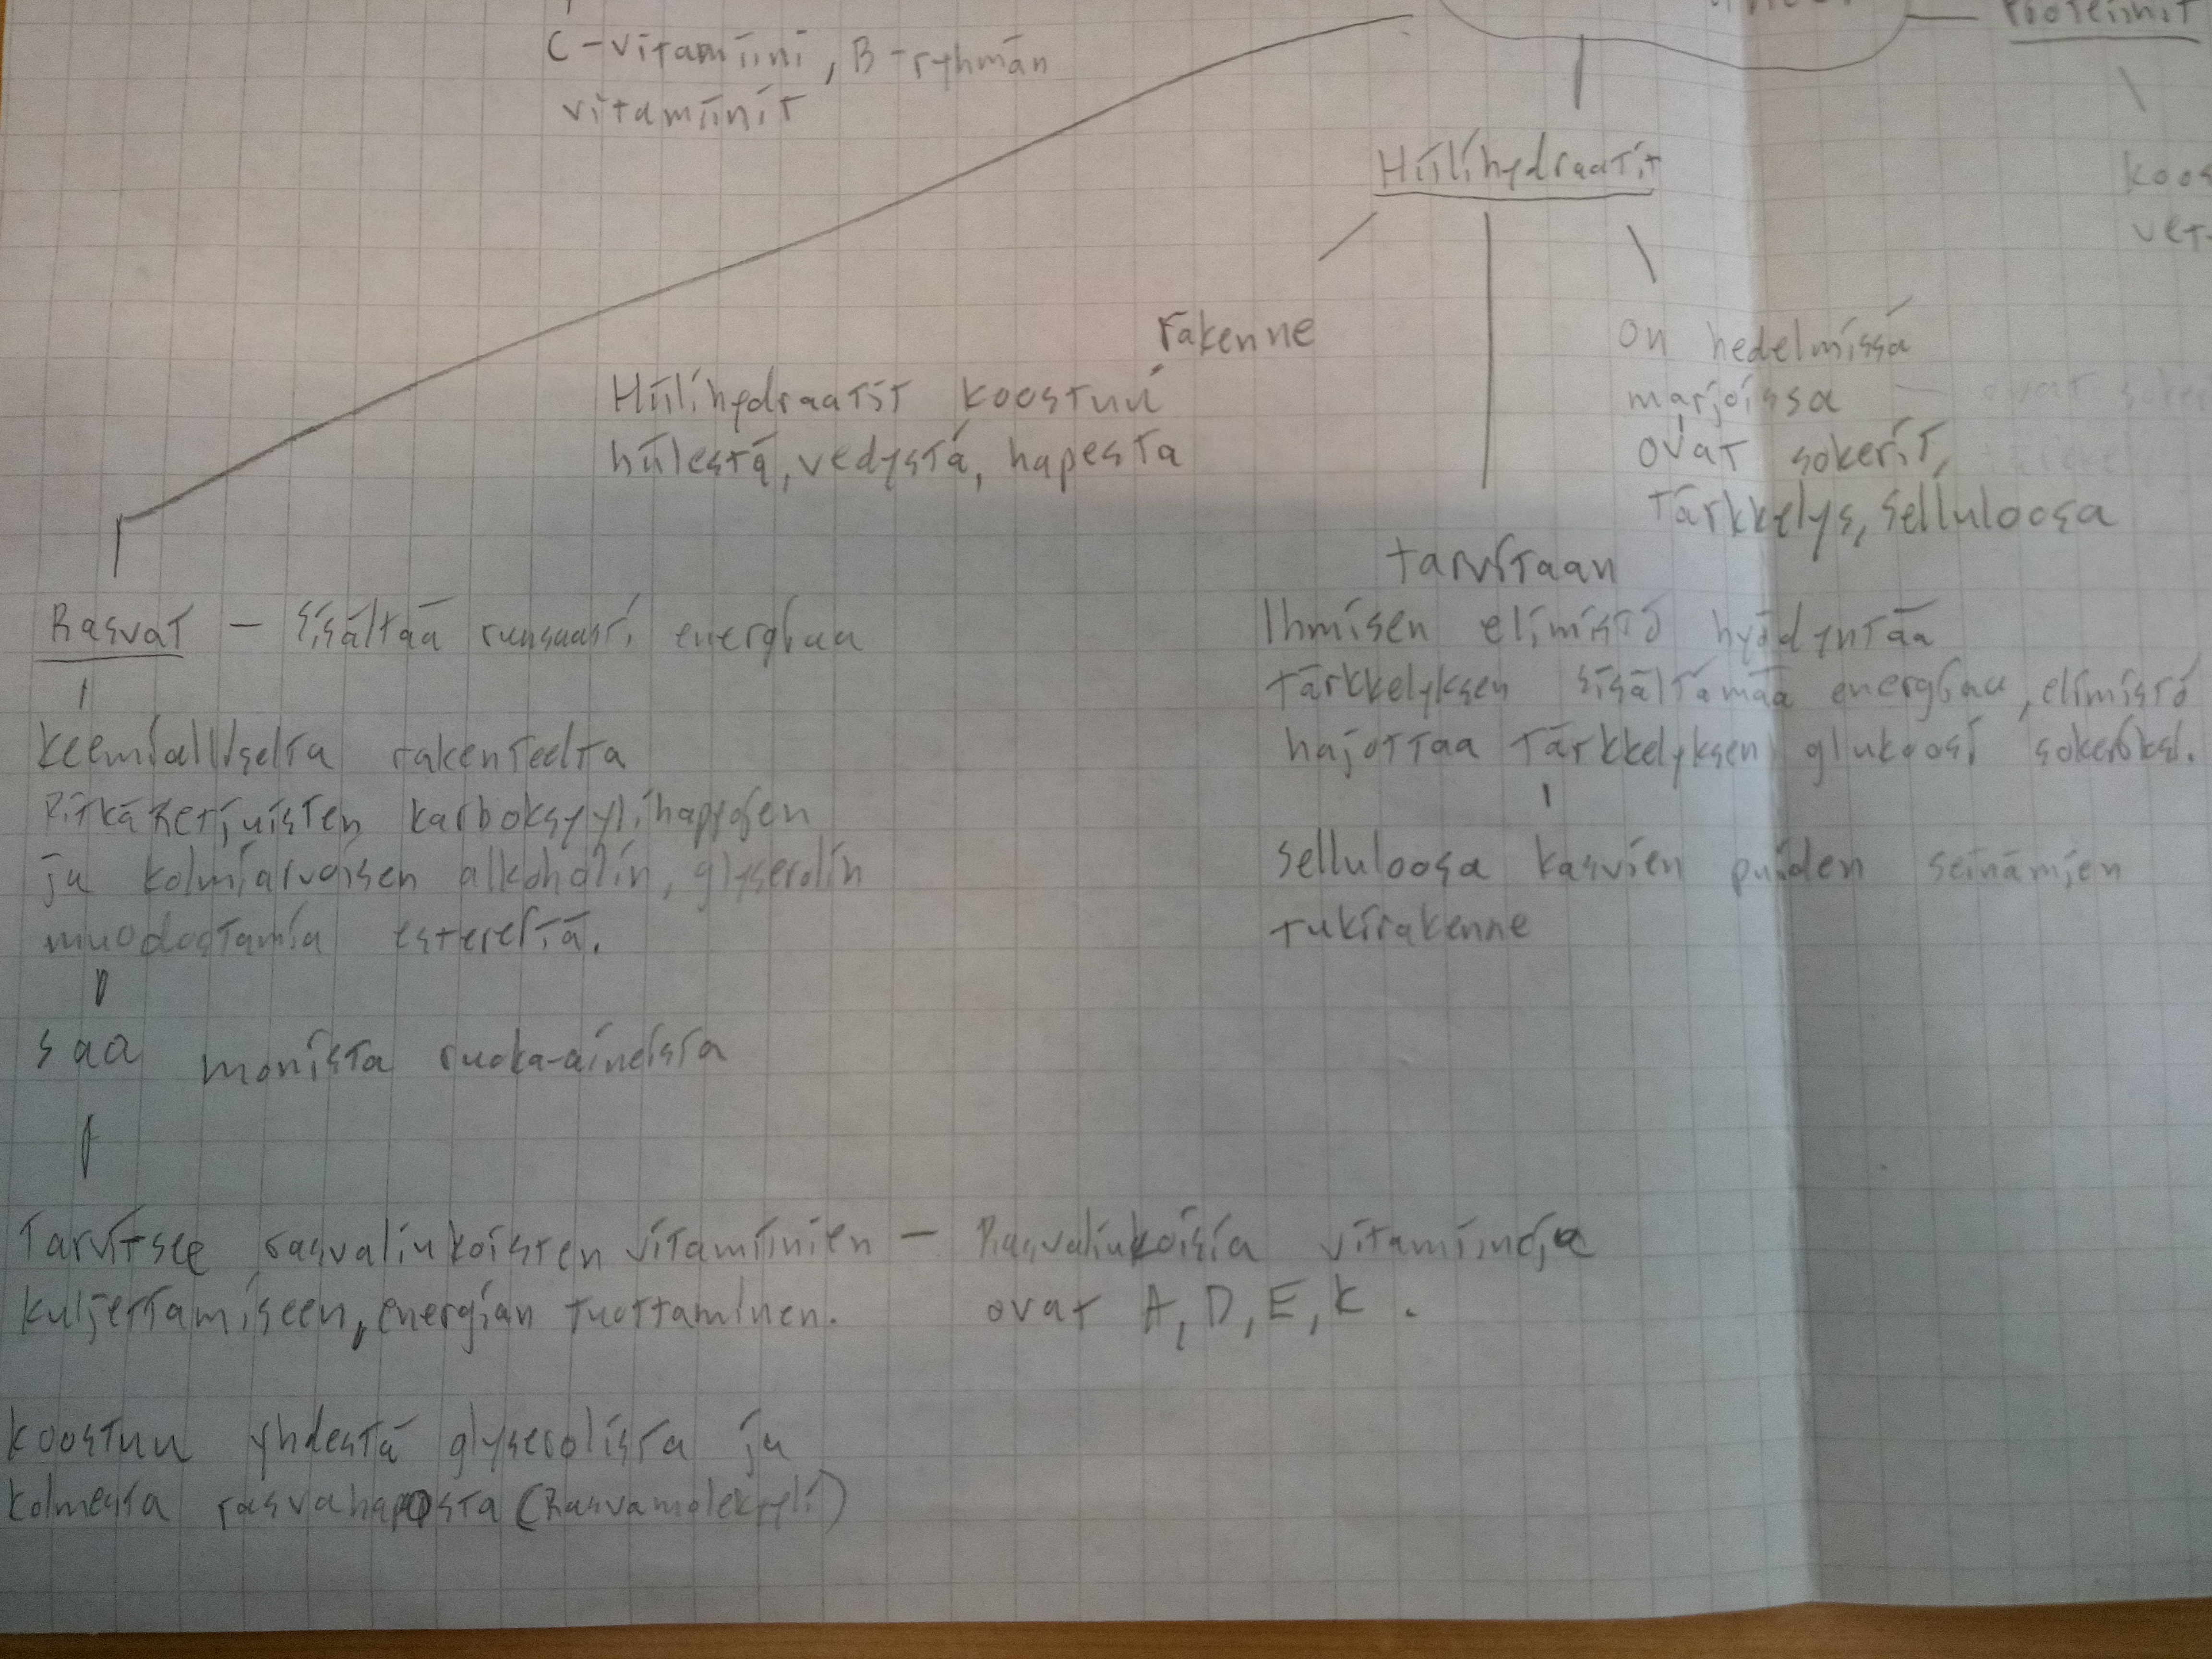 C-vitamiini, B-ryhmän
vitamiinit
Proteiinit
koos
vet
Hiilihydraatit
rakenne
Hiilihydraatit koostuu
hiilestä, vedystä, hapesta
on hedelmissä
marjoissa
ovat sokerit,
tärkkelys, selluloosa
tarvitaan
Ihmisen elimistö hyödyntää
tärkkelyksen sisältämää energiaa, elimistö
hajottaa tärkkelyksen glukoosi sokeriksi.
selluloosa kasvien puiden seinämien
tukirakenne
Rasvat - sisältää runsaasti energiaa
keemialliselta rakenteelta
Pitkäketjuisten karboksyylihappojen
ja kolmiarvoisen alkoholin, glyserolin
muodostamia estereitä.
saa monista ruoka-aineista
Tarvitsee rasvaliukoisten vitamiinien - Rasvaliukoisia vitamiineja
kuljettamiseen, energian tuottaminen. ovat A, D, E, K.
koostuu yhdestä glyserolista ja
kolmesta rasvahaposta (Rasvamolekyyli)